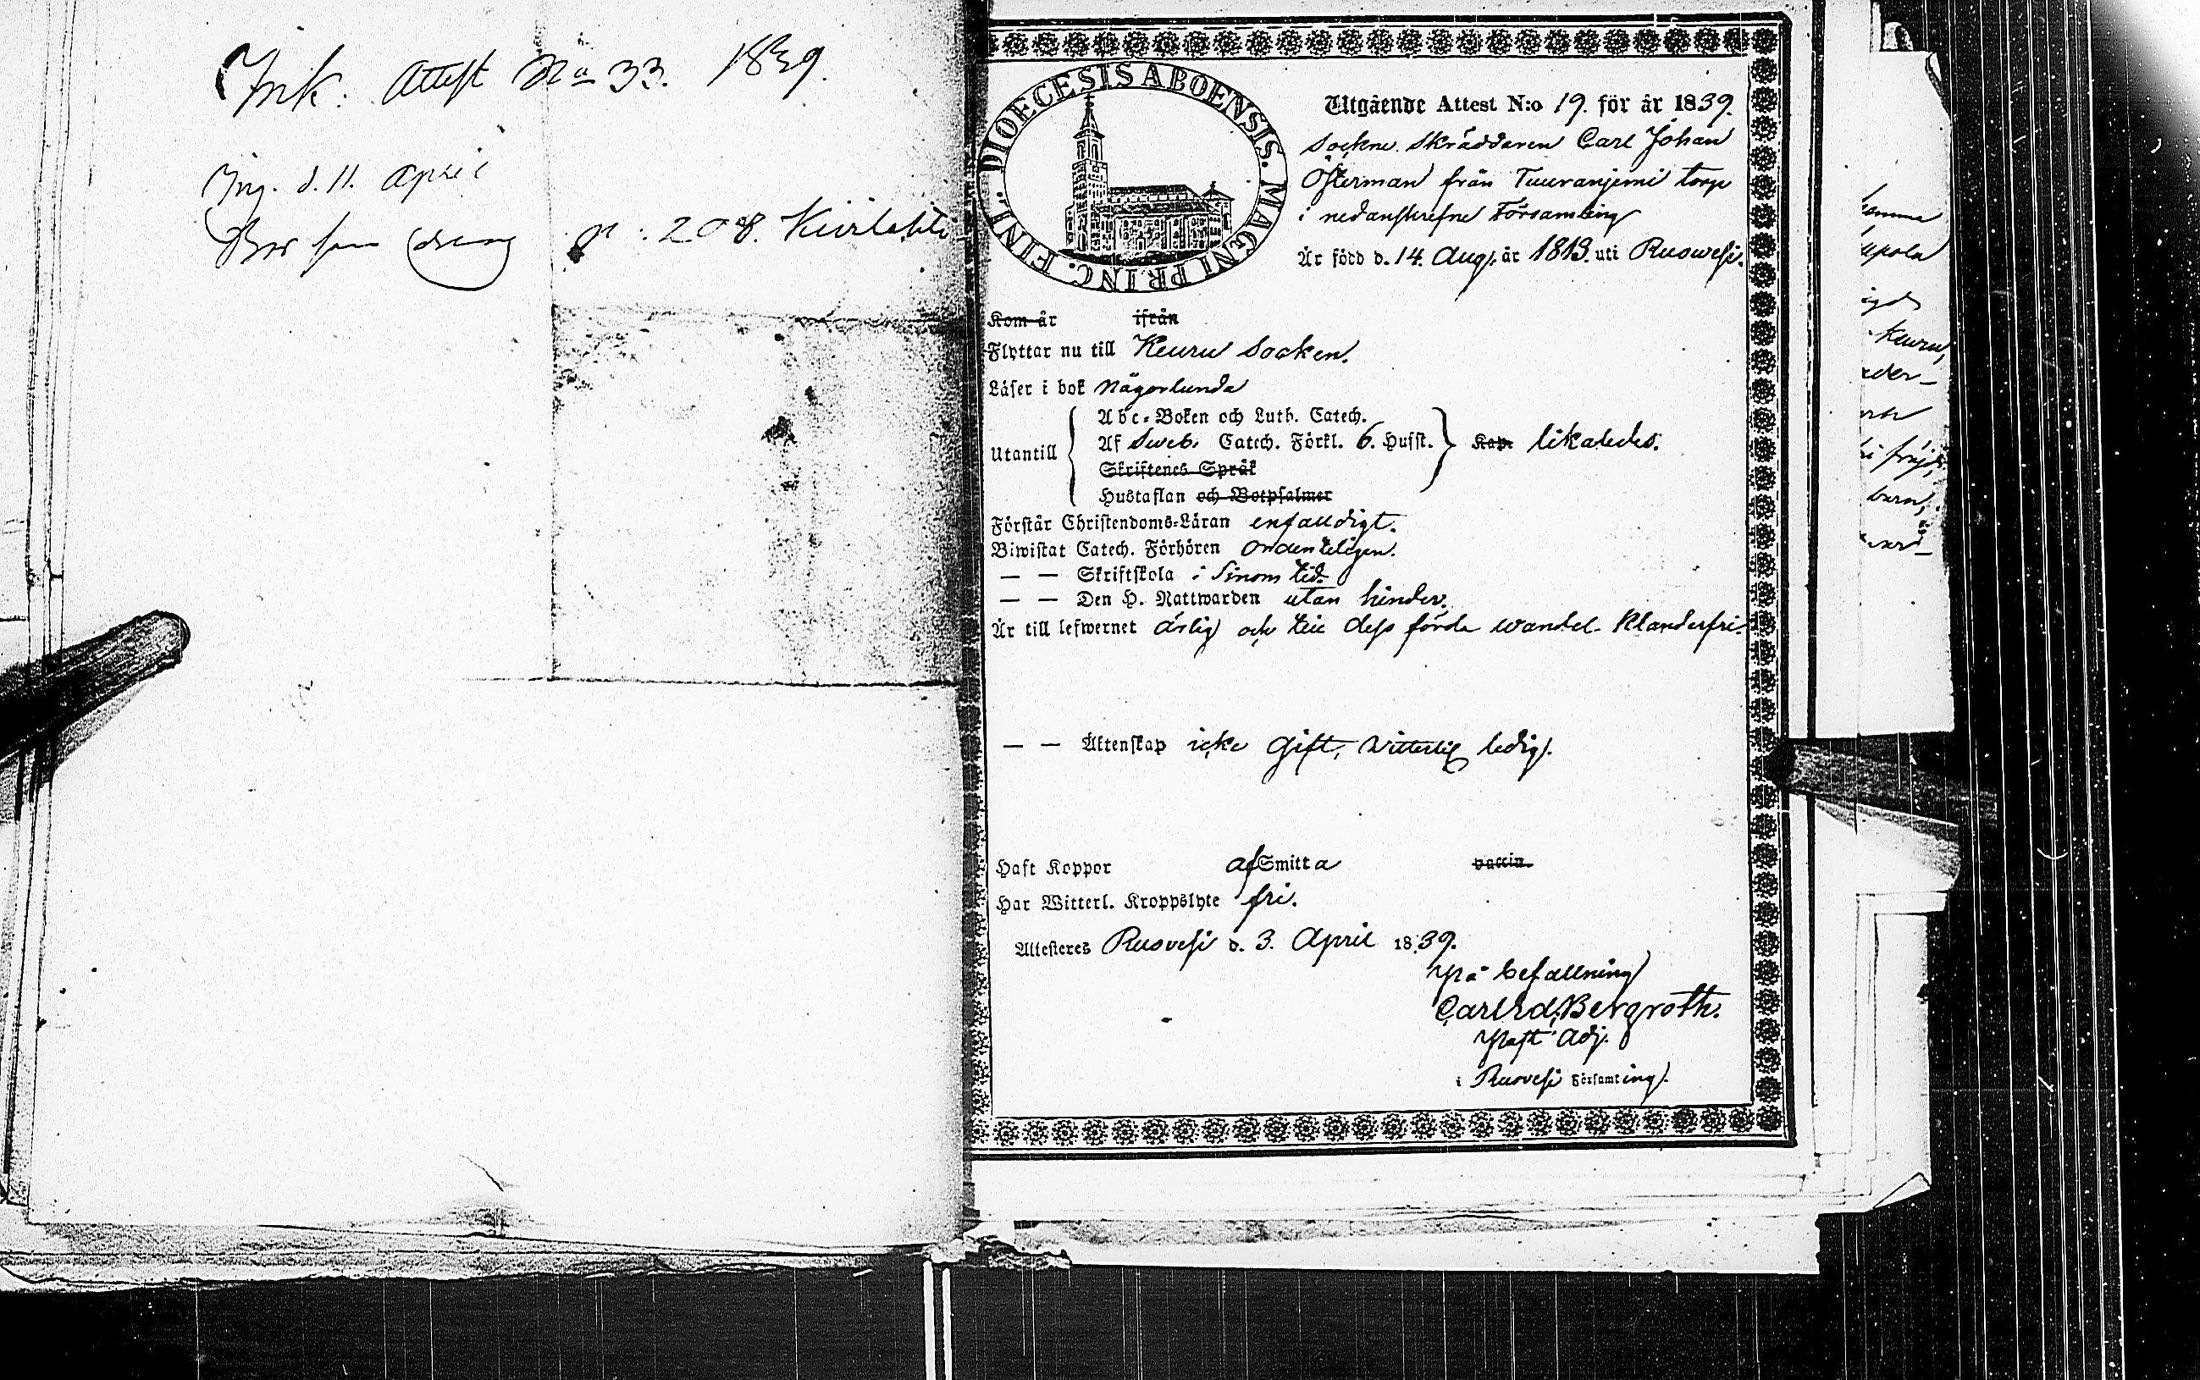 Ink: Attest No 33. 1839.
Ing. d. 11. April
p: 208.
DIOECESIS ABOENSIS. MAGNI PRINC. FINL.
Utgående Attest N:o 19. för år 1839.
Sockne Skräddaren Carl Johan
Österman från Tuuraniemi torp
i nedanskrefne Församling
Är född d. 14. Aug. år 1813. uti Ruowesi.
Kom år ifrån
Flyttar nu till Keuru Socken.
Läser i bok någorlunda
Utantill
Abc-Boken och Luth. Catech.
Af Sweb. Catech. Förkl. 6. Hufst. Kap. likaledes.
Skriftenes Språk
Hustaflan och Botpsalmer
Förstår Christendoms-Läran enfaldigt.
Biwistat Catech. Förhören ordenteligen.
— — Skriftskola i sinom tid.
— — Den H. Nattwarden utan hinder.
Är till lefwernet ärlig och till dess förde wandel Klanderfri.
— — Äktenskap icke gift, witterlig ledig.
Haft Koppor af Smitta vaccin.
Har Witterl. Kroppslyte fri.
Attesteres Ruovesi d. 3. April 1839.
På befallning
Carl Ed. Bergroth.
Past. Adj.
i Ruovesi Församling.
Keuru,
barn,